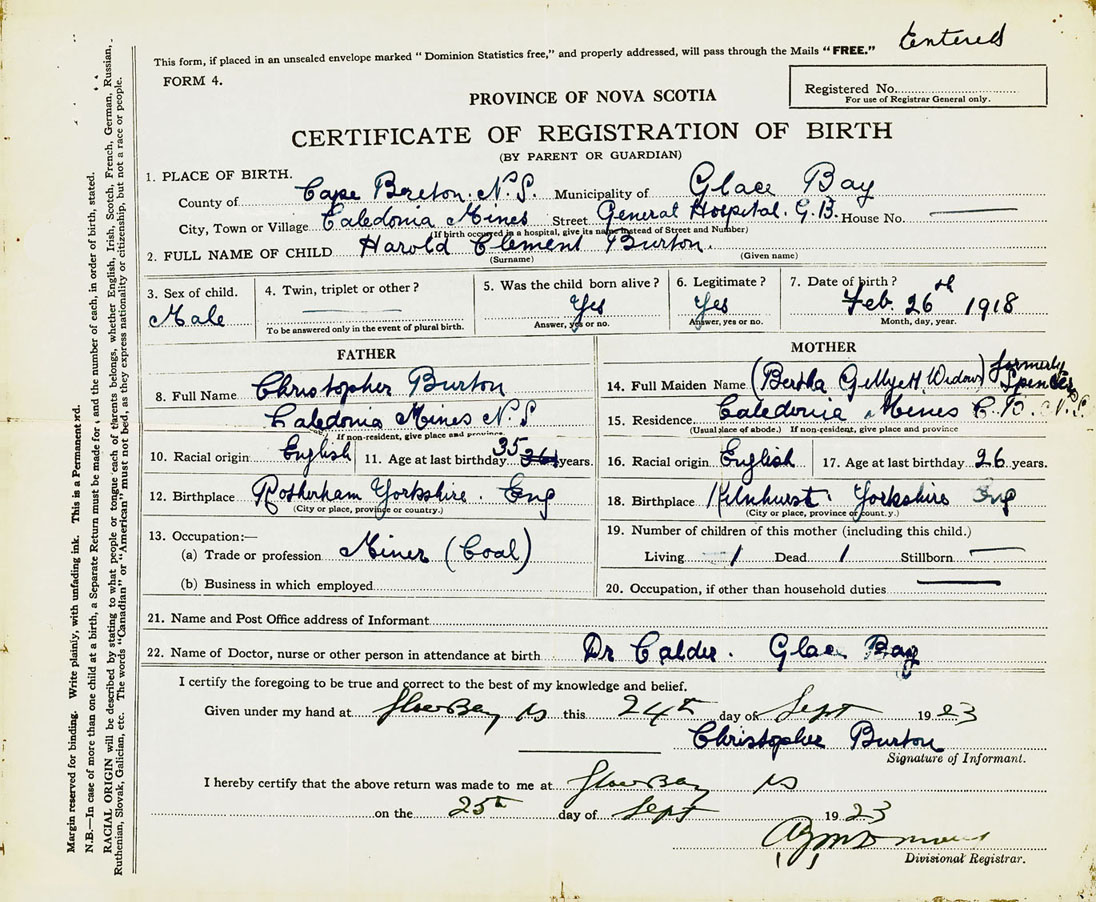 Entered
This form, if placed in an unsealed envelope marked "Dominion Statistics free," and properly addressed, will pass through the Mails "FREE."
FORM 4.
Registered No.
For use of Registrar General only.
PROVINCE OF NOVA SCOTIA
CERTIFICATE OF REGISTRATION OF BIRTH
(BY PARENT OR GUARDIAN)
1. PLACE OF BIRTH.
County of Cape Breton. N.S. Municipality of Glace Bay
City, Town or Village Caledonia Mines Street General Hospital. G.B. House No.
(If birth occurred in a hospital, give its name instead of Street and Number)
2. FULL NAME OF CHILD Harold Clement Burton.
(Surname) (Given name)
3. Sex of child. Male
4. Twin, triplet or other?
To be answered only in the event of plural birth.
5. Was the child born alive? Yes
Answer, yes or no.
6. Legitimate? Yes
Answer, yes or no.
7. Date of birth? Feb. 26th 1918
Month, day, year.
FATHER
8. Full Name Christopher Burton
Caledonia Mines N.S
If non-resident, give place and province
10. Racial origin English 11. Age at last birthday 35 36 years.
12. Birthplace Rotherham Yorkshire. Eng
(City or place, province or country.)
13. Occupation:—
(a) Trade or profession Miner (Coal)
(b) Business in which employed
MOTHER
14. Full Maiden Name (Bertha Gellyett Widow) formerly Spencer
15. Residence Caledonia Mines C.B. N.S.
(Usual place of abode.) If non-resident, give place and province
16. Racial origin English 17. Age at last birthday 26 years.
18. Birthplace Kilnhurst. Yorkshire Eng
(City or place, province or country.)
19. Number of children of this mother (including this child.)
Living 1 Dead 1 Stillborn
20. Occupation, if other than household duties
21. Name and Post Office address of Informant
22. Name of Doctor, nurse or other person in attendance at birth Dr Calder. Glace Bay
I certify the foregoing to be true and correct to the best of my knowledge and belief.
Given under my hand at Glace Bay NS this 24th day of Sept 1923
Christopher Burton
Signature of Informant.
I hereby certify that the above return was made to me at Glace Bay NS
on the 25th day of Sept 1923
Divisional Registrar.
Margin reserved for binding. Write plainly, with unfading ink. This is a Permanent
N.B.—In case of more than one child at a birth, a Separate Return must be made for and the number of each, in order of birth, stated.
RACIAL ORIGIN will be described by stating to what people or tongue each of parents belongs, whether English, Irish, Scotch, French, German, Russian,
Ruthenian, Slovak, Galician, etc. The words "Canadian" or "American" must not be used, as they express nationality or citizenship, but not a race or people.